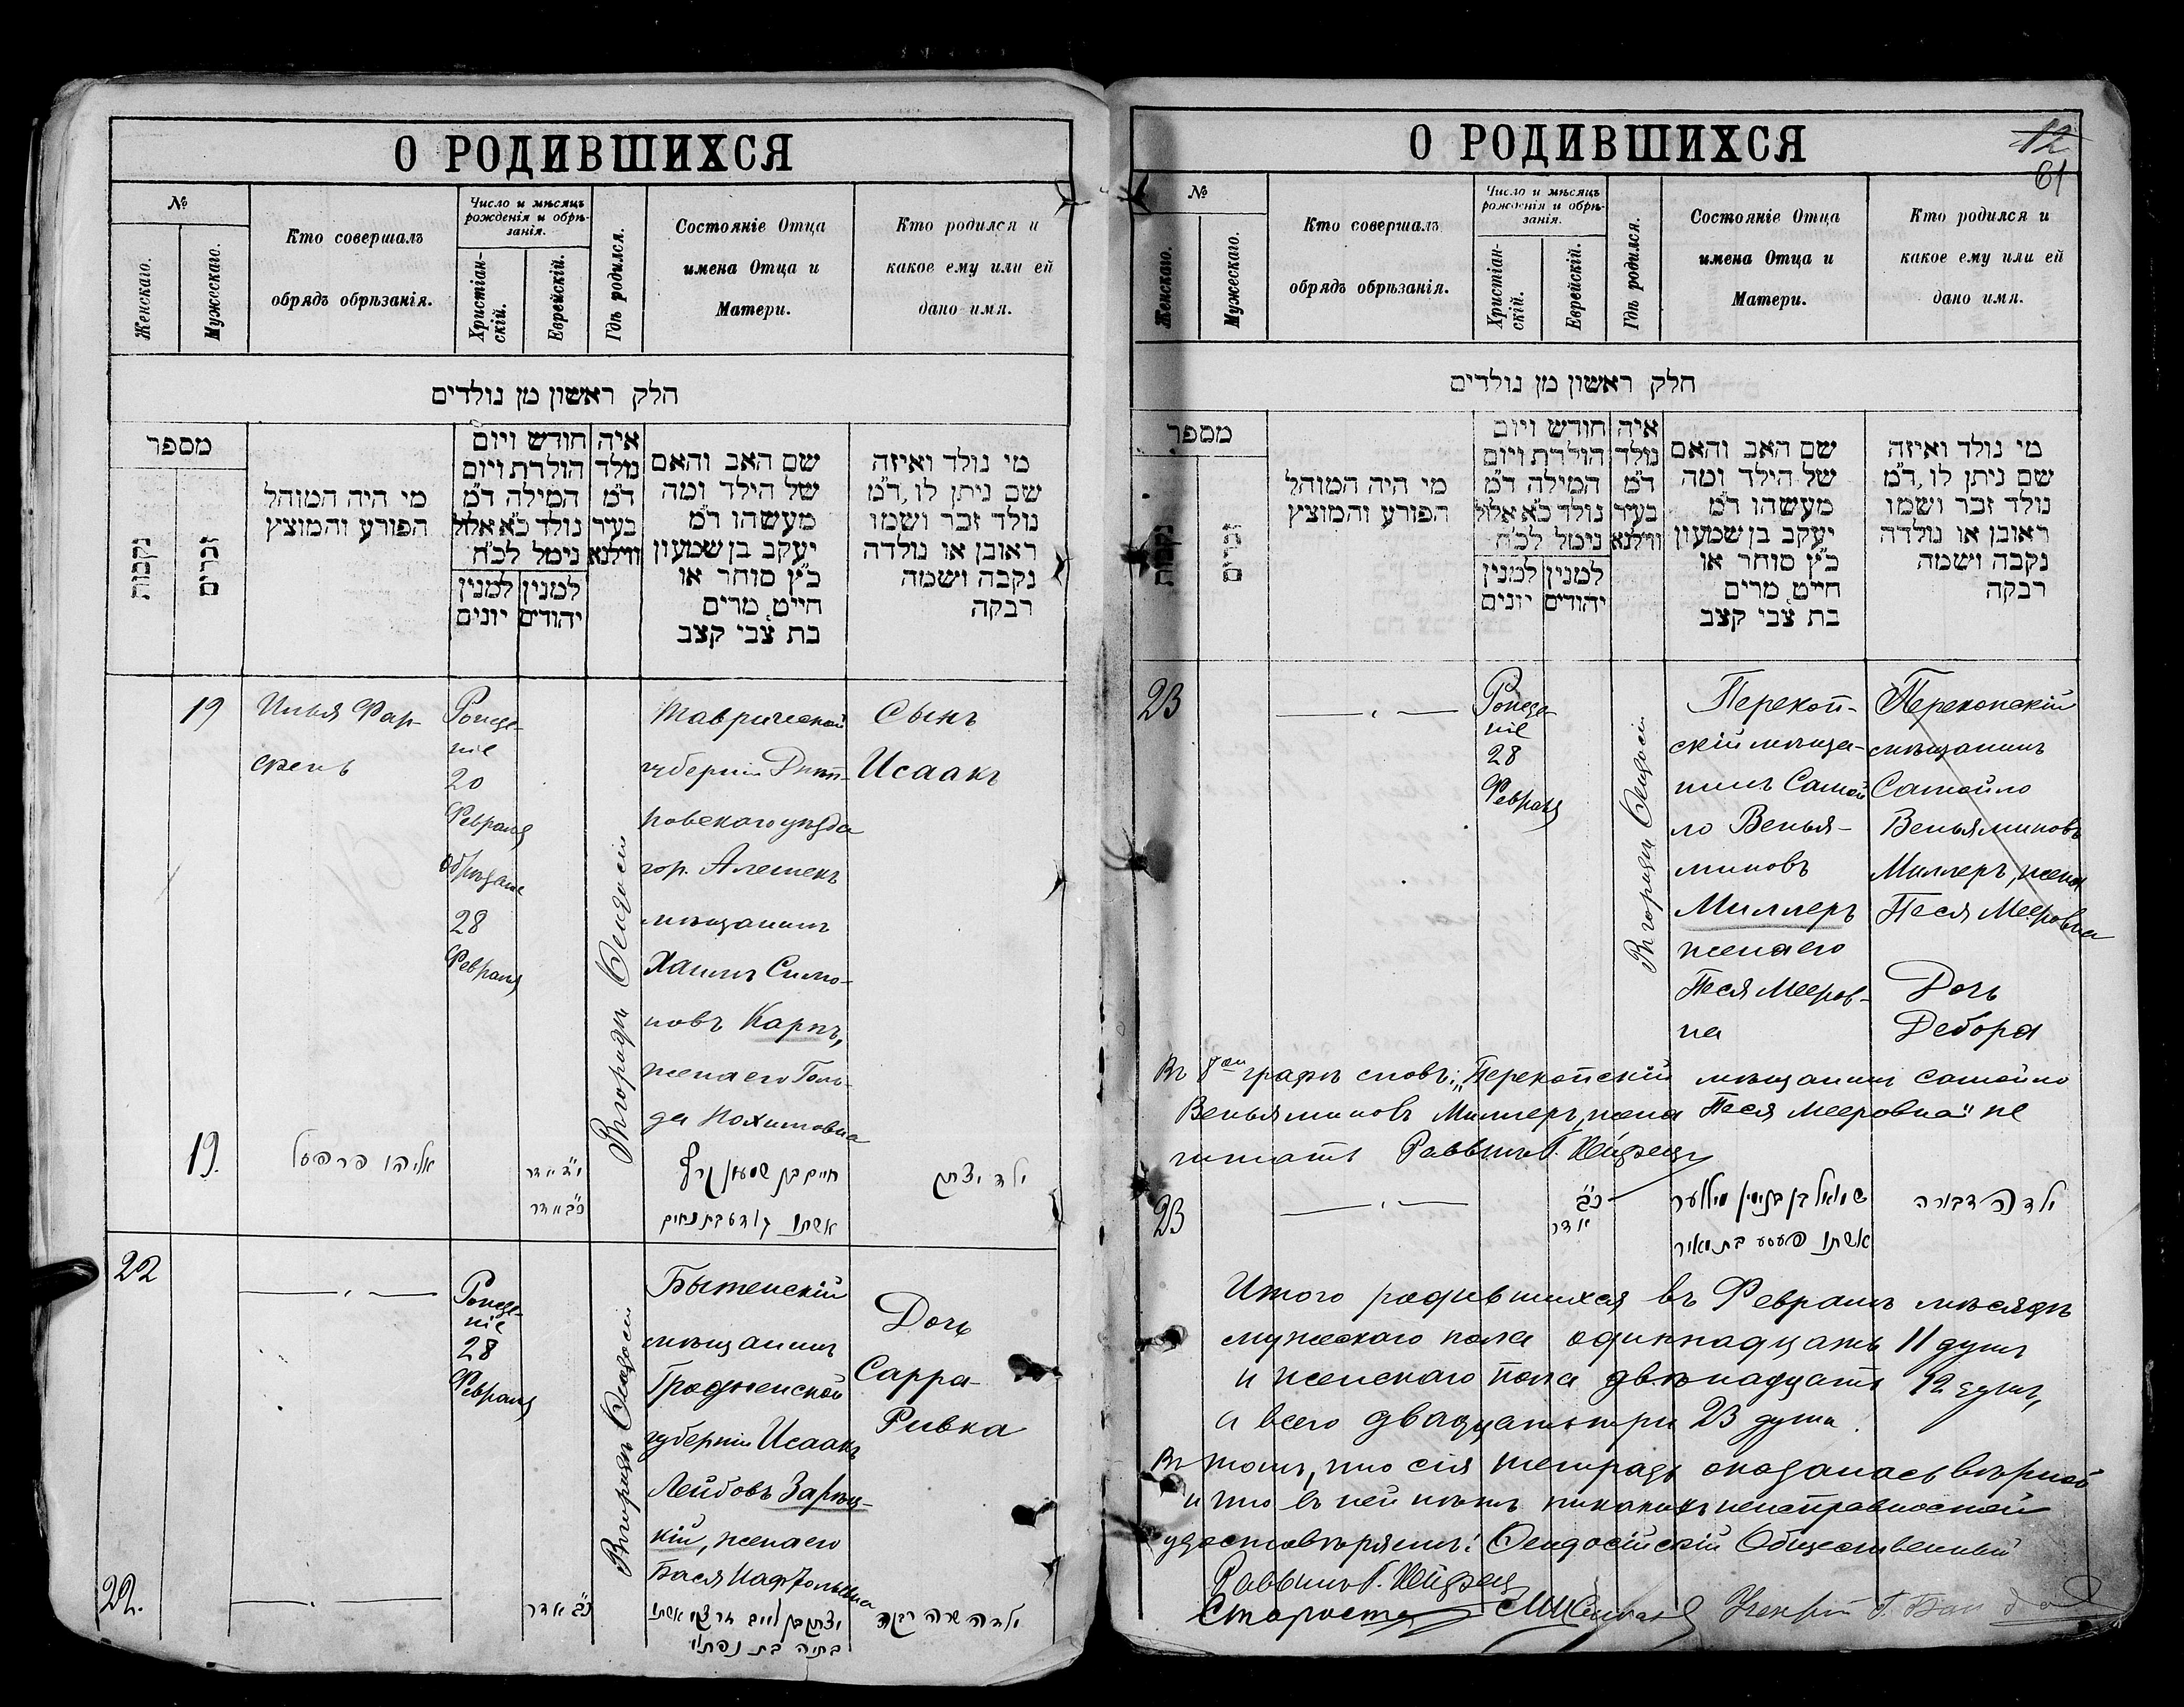 О РОДИВШИХСЯ
№
Женскаго.
Мужескаго.
Кто совершалъ
обрядъ обрѣзанія.
Число и мѣсяцъ
рожденія и обрѣ-
занія.
Христіан-
скій.
Еврейскій.
Гдѣ родился.
Состояніе Отца
имена Отца и
Матери.
Кто родился и
какое ему или ей
дано имя.
חלק ראשון מן נולדים
מספר
נקבות
זכרים
מי היה המוהל
הפורע והמוצץ
חודש ויום
הולדת ויום
המילה ד״מ
נולד כ״א אלול
נימל לכ״ח
למנין
יהודים
למנין
יונים
איה
נולד
ד״מ
בעיר
ווילנא
שם האב והאם
של הילד ומה
מעשהו ד״מ
יעקב בן שמעון
כ״ץ סוחר או
חייט, מרים
בת צבי קצב
מי נולד ואיזה
שם ניתן לו, ד״מ
נולד זכר ושמו
ראובן או נולדה
נקבה ושמה
רבקה
19
Илья Фар-
Рожде-
ніе
20
Февраля
Обрѣзаніе
28
Февраля
Въ городѣ Ѳеодосіи
Таврической
губерніи Днѣп-
ровскаго уѣзда
гор. Алешекъ
мѣщанинъ
Хаимъ Симо-
новъ Карпъ,
жена его Голь-
да Нохимовна
Сынъ
Исаакъ
19.
כ״ב אדר
ילד יצחק
22
Рожде-
ніе
28
Февраля
Въ городѣ Ѳеодосіи
Бытенскій
мѣщанинъ
Гродненской
губерніи Исаакъ
Лейбовъ Зарѣц-
кій, жена его
Бася Нафтольевна
Дочь
Сарра-
Ривка
22.
כ״ב אדר
בתיה בת נפתלי
ילדה שרה רבקה
О РОДИВШИХСЯ
12
61
№
Женскаго.
Мужескаго.
Кто совершалъ
обрядъ обрѣзанія.
Число и мѣсяцъ
рожденія и обрѣ-
занія.
Христіан-
скій.
Еврейскій.
Гдѣ родился.
Состояніе Отца
имена Отца и
Матери.
Кто родился и
какое ему или ей
дано имя.
חלק ראשון מן נולדים
מספר
נקבות
זכרים
מי היה המוהל
הפורע והמוצץ
חודש ויום
הולדת ויום
המילה ד״מ
נולד כ״א אלול
נימל לכ״ח
למנין
יהודים
למנין
יונים
איה
נולד
ד״מ
בעיר
ווילנא
שם האב והאם
של הילד ומה
מעשהו ד״מ
יעקב בן שמעון
כ״ץ סוחר או
חייט, מרים
בת צבי קצב
מי נולד ואיזה
שם ניתן לו, ד״מ
נולד זכר ושמו
ראובן או נולדה
נקבה ושמה
רבקה
23
Рожде-
ніе
28
Февраля
Въ городѣ Ѳеодосіи
Перекоп-
скій мѣща-
нинъ Самой
ло Венья-
миновъ
Миллеръ
жена его
Песя Мееров-
на
Перекопскій
мѣщанинъ
Самойло
Веньяминовъ
Миллеръ, жена
Песя Мееровна
Дочь
Дебора
Въ 8ой графѣ словъ: „Перекопскій мѣщанинъ Самойло
Веньяминовъ Миллеръ, жена Песя Мееровна" не
читать Раввинъ
23
כ״ב
אדר
שמואל בן בנימין מיללער
אשתו פעסע בת מאיר
ילדה דבורה
Итого родившихся въ Февралѣ мѣсяцѣ
мужескаго пола одиннадцать 11 душъ
и женскаго пола двѣнадцать 12 душъ,
а всего двадцать три 23 душа.
Въ томъ, что сія тетрадь оказалась вѣрной
и что въ ней нѣтъ никакихъ неисправностей
удостовѣряемъ: Ѳеодосійскій Общественный
Раввинъ
Староста